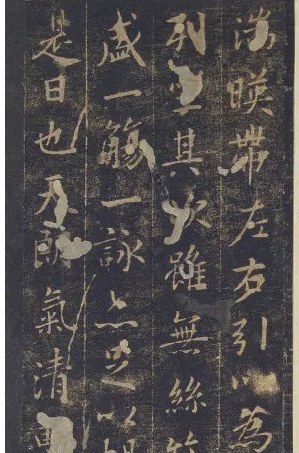 湍暎帶左右引以為
列坐其次雖無絲竹
盛一觴一詠亦足以暢
是日也天朗氣清